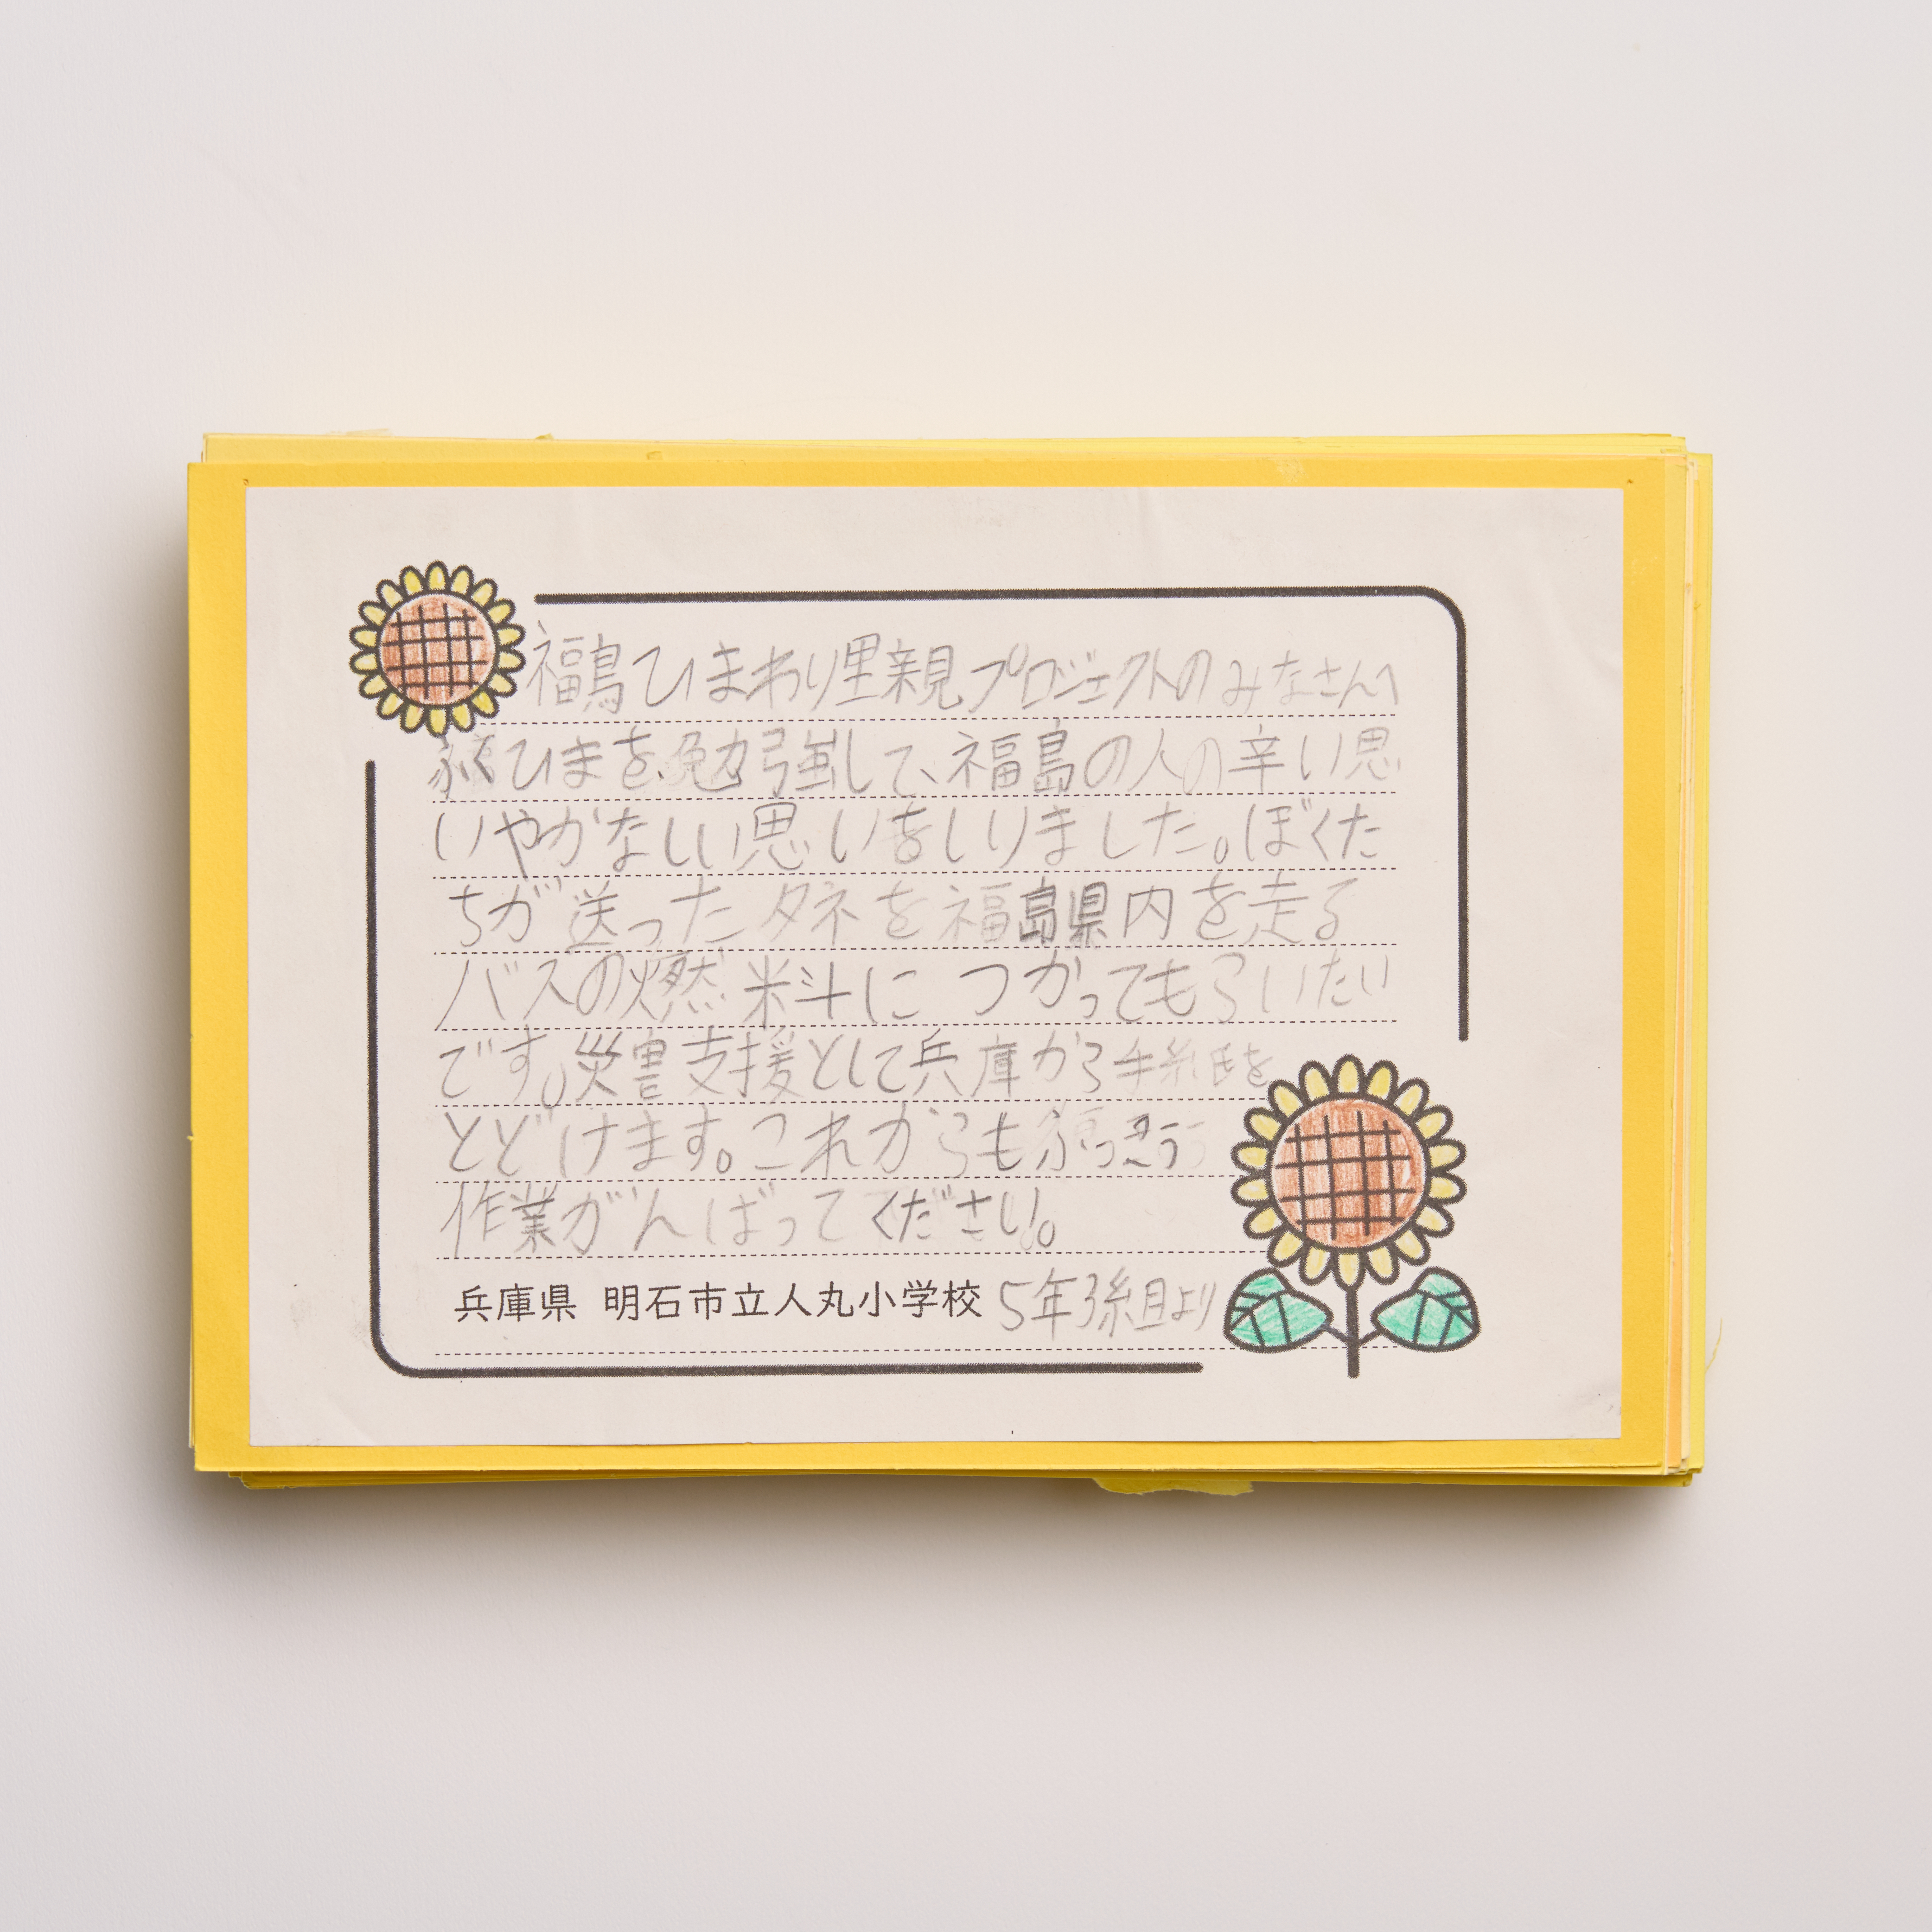 福島ひまわり里親プロジェクトのみなさんへ
ふくひまを、勉強して、福島の人の辛い思
いやかなしい思いをしりました。ぼくた
ちが送ったタネを福島県内を走る
バスの燃料につかってもらいたい
です。災害支援として兵庫から手紙を
とどけます。これからもふっきう
作業がんばってください。
兵庫県 明石市立人丸小学校 5年3組より